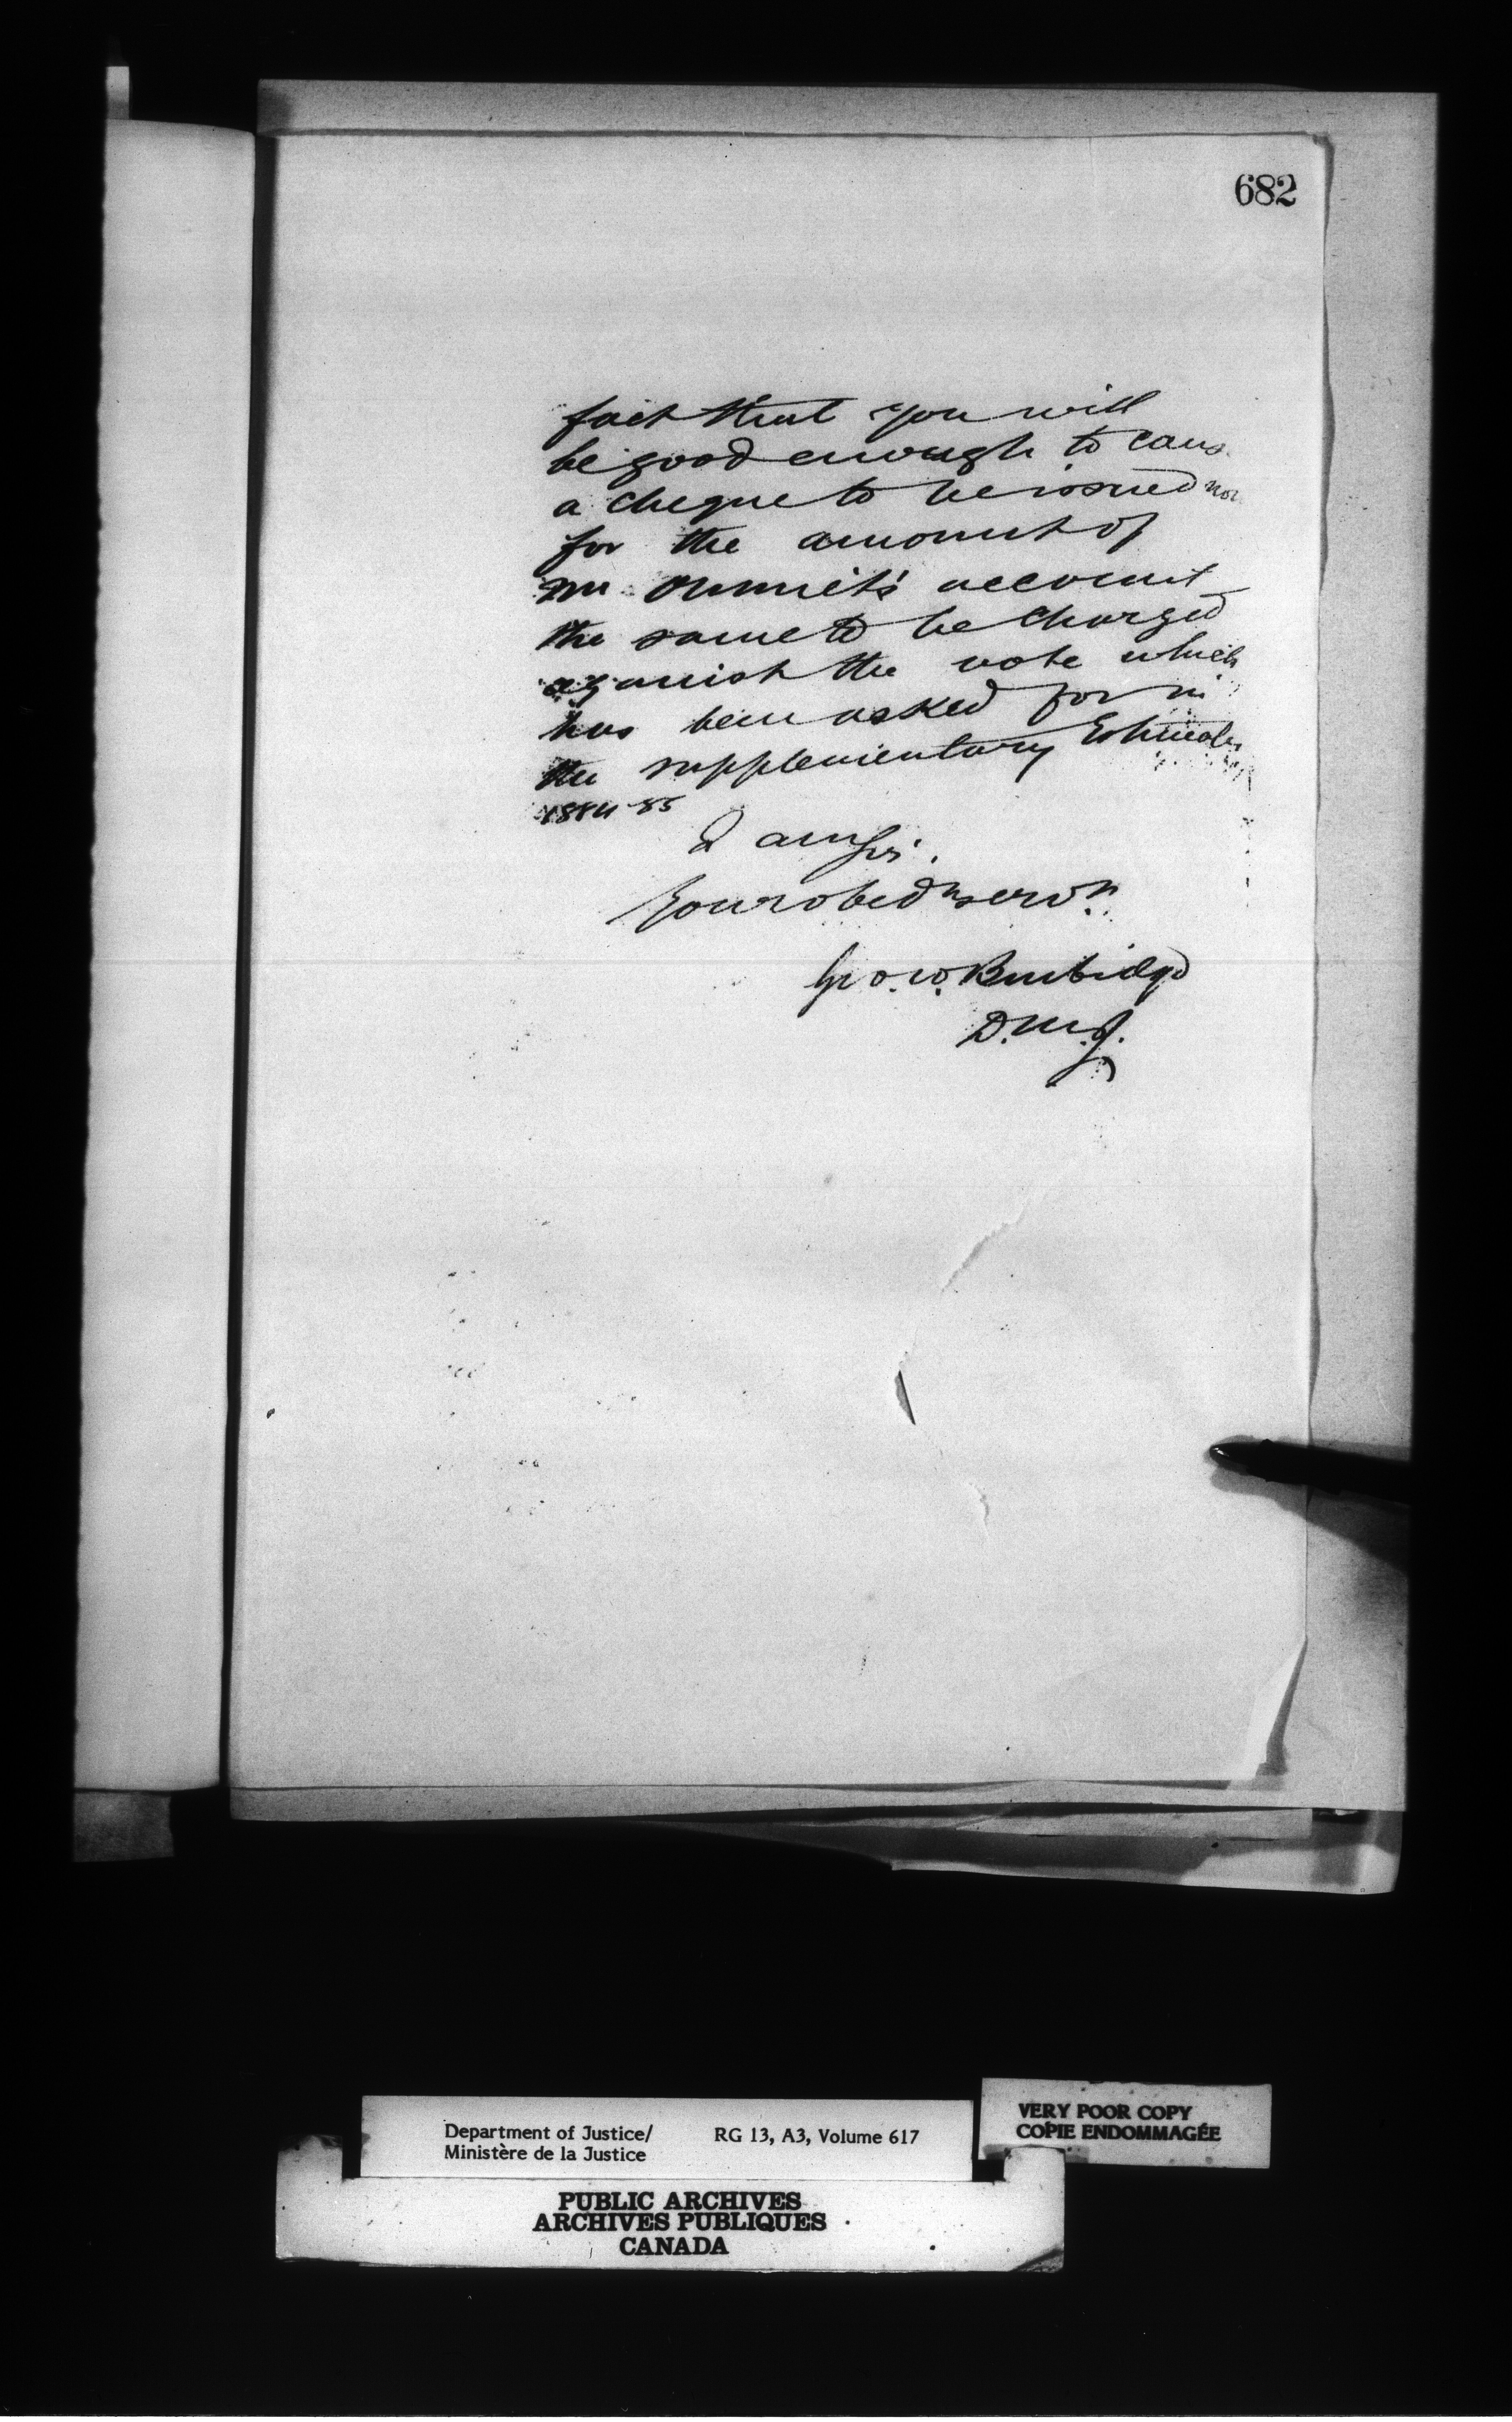 682
fact that you will
be good enough to caus
a cheque to be issued now
for the amount of
Mr account
the same to be charged
against the vote which
has been asked for in
the supplementary Estimates
1884-85
I am Sir.
Your obedt servt
Geo. W. Burbidge
D.M.J.
Department of Justice/ RG 13, A3, Volume 617
Ministère de la Justice
VERY POOR COPY
COPIE ENDOMMAGÉE
PUBLIC ARCHIVES
ARCHIVES PUBLIQUES
CANADA